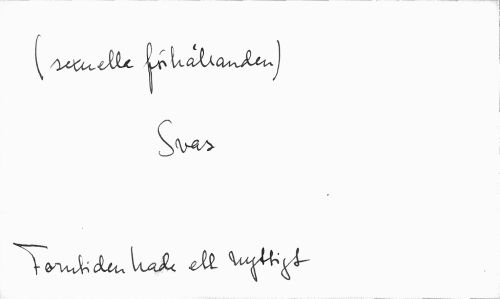 (sexuella förhållanden)
Svar
Forntiden hade ett nyttigt